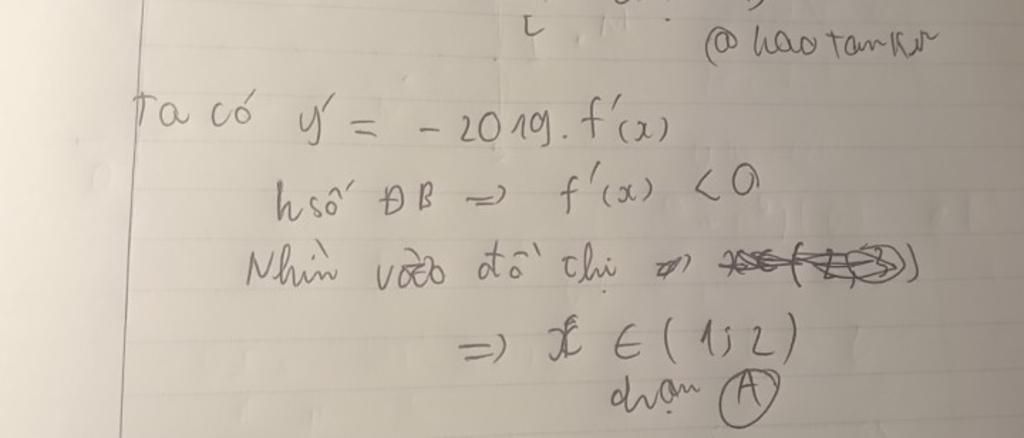 [
@haotanker
Ta có y' = - 2019. f'(x)
h số ĐB => f'(x) < 0
Nhìn vào đồ thị =>
=> x ∈ (1; 2)
chọn A